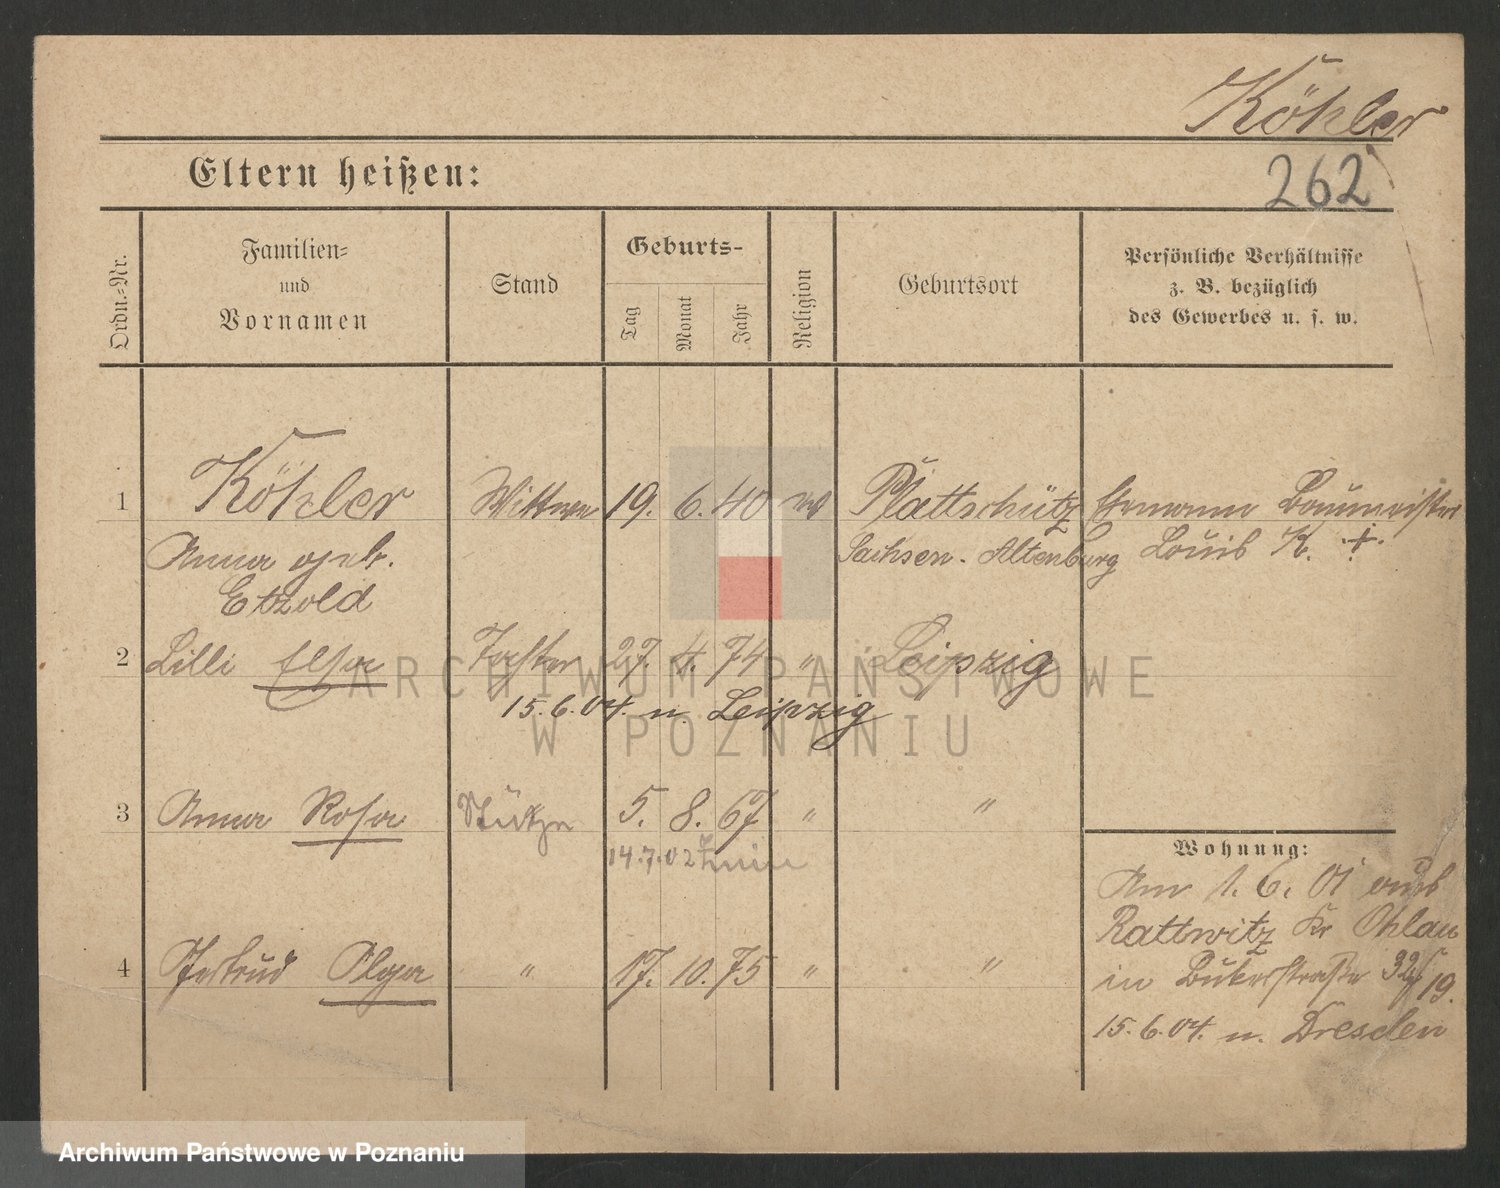 Köhler
262
Eltern heißen:
Ordn.-Nr.
Familien-
und
Vornamen
Stand
Geburts-
Tag
Monat
Jahr
Religion
Geburtsort
Persönliche Verhältnisse
z. B. bezüglich
des Gewerbes u. s. w.
1 Köhler Wittwe 19. 6. 40 Plattschütz Ehemann Baumeister
Anna geb. Sachsen-Altenburg Louis K. +
Etzold
2 Lilli Elsa Tochter 27. 4. 74 " Leipzig
15.6.04. n. Leipzig
3 Anna Rosa Stütze 5. 8. 67 " "
14.7.02 Znin
Wohnung:
Am 1. 6. 01 aus
Rattwitz Kr Ohlau
4 Gertrud Olga " 17. 10. 75 " "
in Bukerstraße 19.
15.6.04. n. Dresden
ARCHIWUM PAŃSTWOWE
W POZNANIU
Archiwum Państwowe w Poznaniu